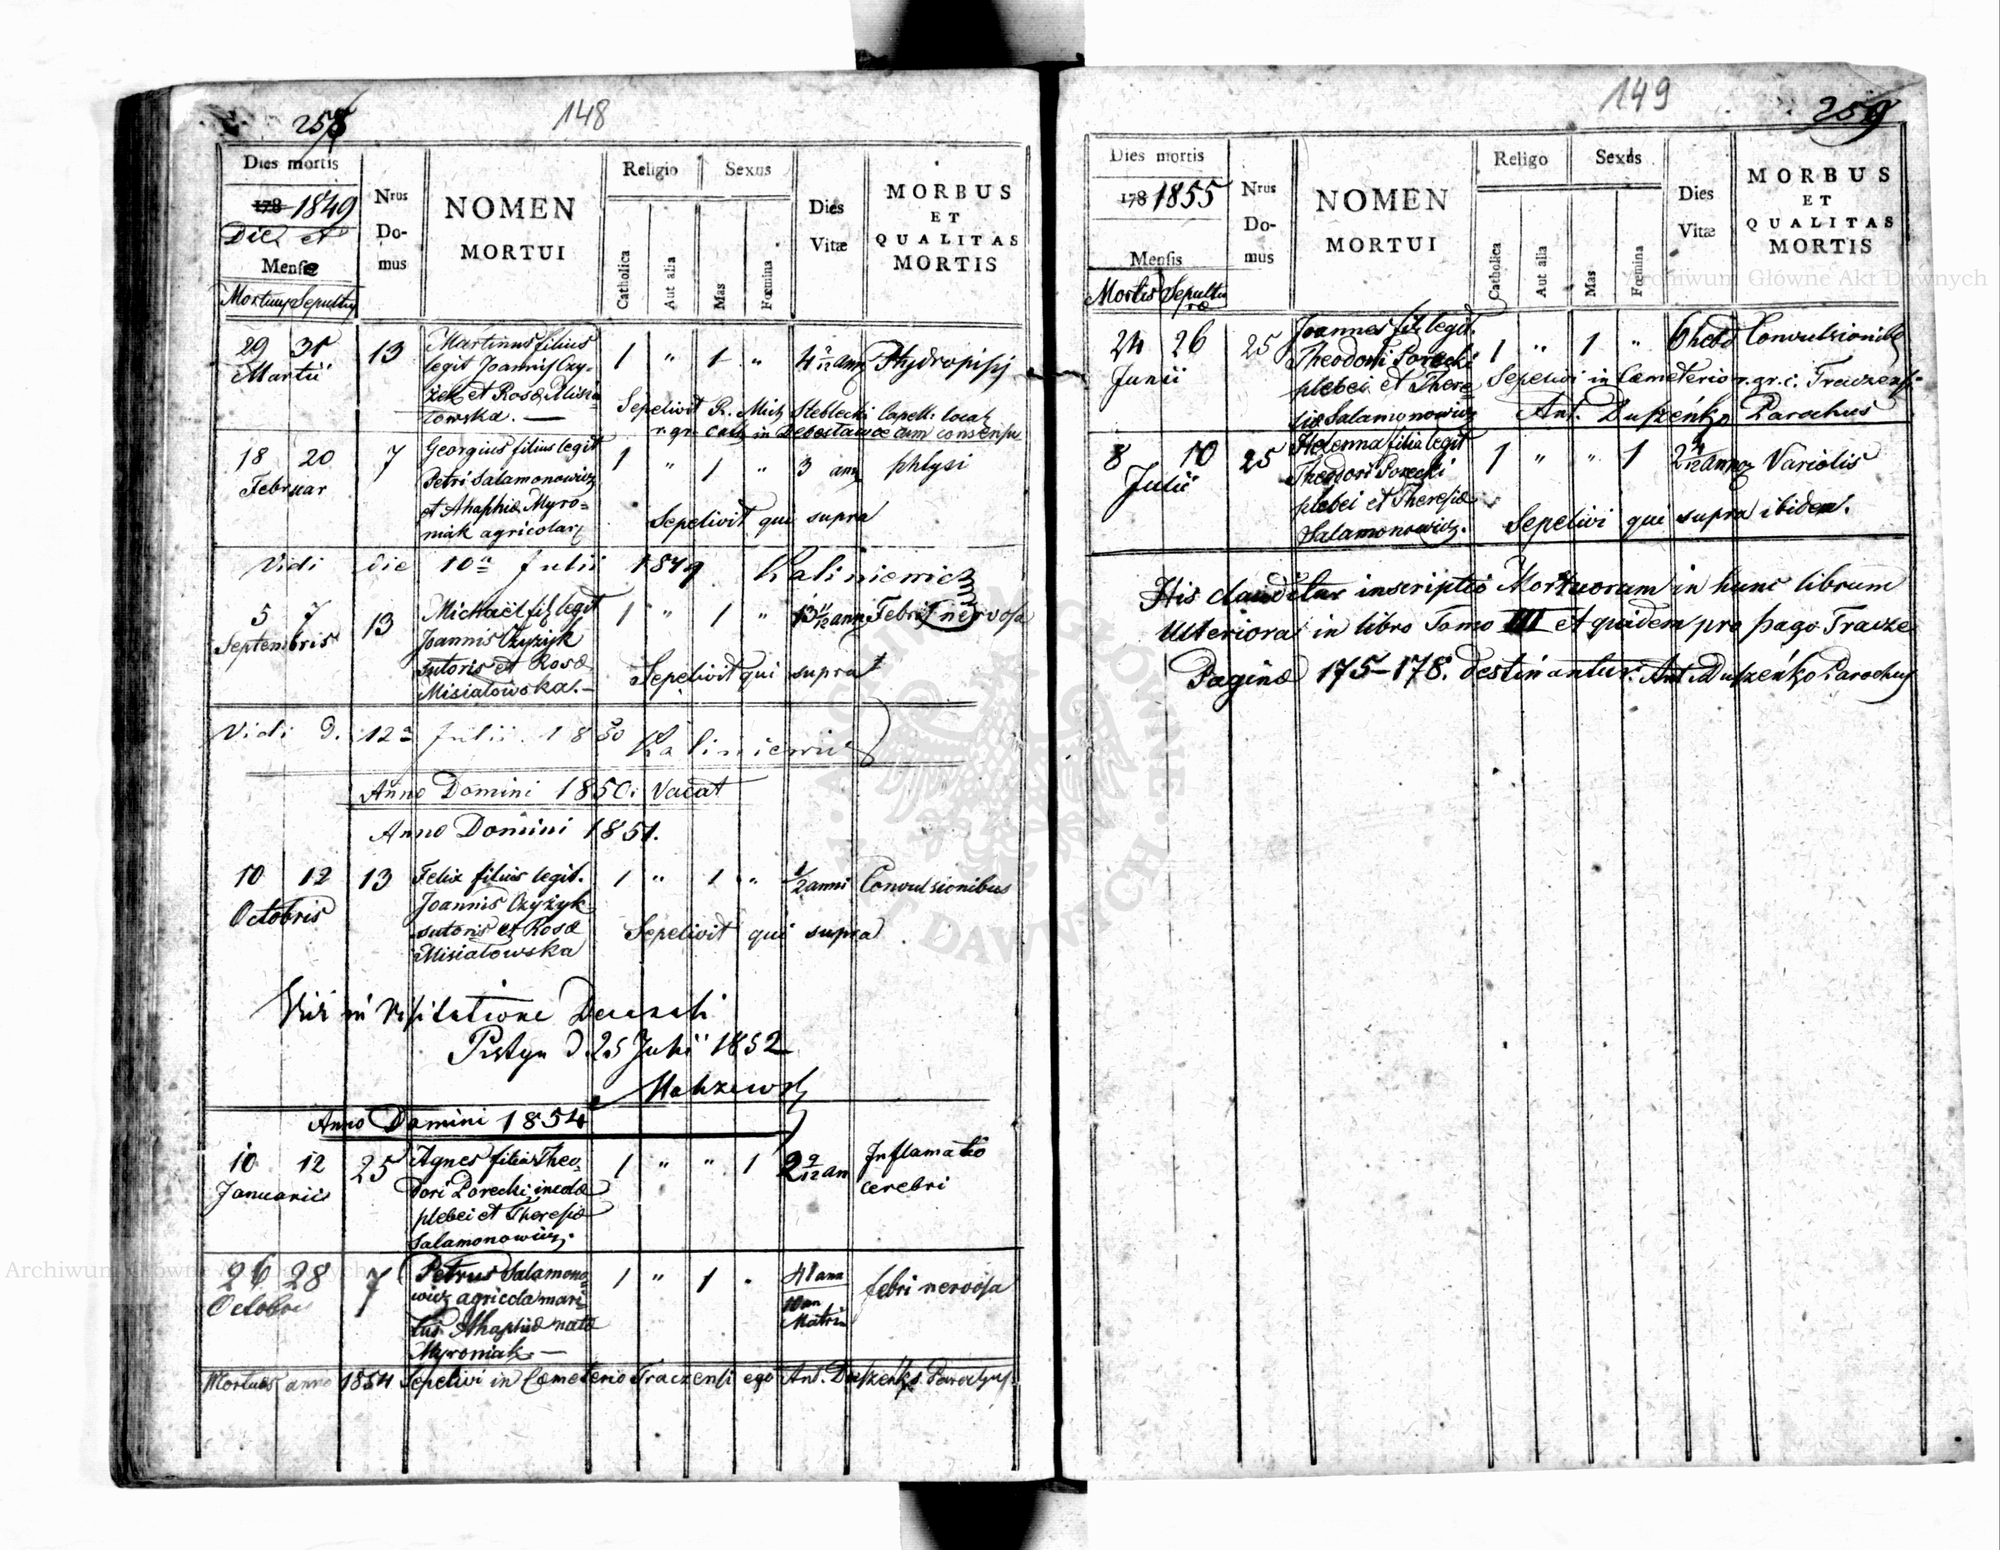 258
148
Dies mortis
178 1849
Die et
Mense
Mortuus Sepultus
Nrus
Do-
mus
NOMEN
MORTUI
Religio
Catholica
Aut alia
Sexus
Mas
Fœmina
Dies
Vitæ
MORBUS
ET
QUALITAS
MORTIS
29 31 13 Martinus filius 1 " 1 " 4 9/12 ann Hydropisi
Martii legit Joannis Czy-
żek et Rosæ Misia-
towska. —
Sepelivit R. Mich Steblecki Capell: local
r. gr. cath in Debestawce cum consensu
18 20 7 Georgius filius legit 1 " 1 " 3 ann phtysi
Februar Petri Salamonowicz
et Ahaphiæ Myro=
niak agricolar
Sepelivit qui supra
Vidi die 10a Julii 1849 Kaliniewicz
5 7 13 Michaël fil legit 1 " 1 " 13 11/12 ann Febris nervosa
Septembris Joannis Czyżyk
sutoris et Rosæ
Misiatowska. —
Sepelivit qui supra
Vidi d. 12a Julii 1850 Kaliniewicz
Anno Domini 1850. Vacat
Anno Domini 1851.
10 12 13 Felix filius legit. 1 " 1 " 1/2 anni Convulsionibus
Octobris Joannis Czyżyk
sutoris et Rosæ
Misiatowska
Sepelivit qui supra
Vidi in Visitatione Decanali
Pistyn d. 25 Julii 1852
Anno Domini 1854
10 12 25 Agnes filia Theo- 1 " " 1 2 9/12 an Inflamatio
Januarii dori Porecki incolæ cerebri
plebei et Theresiæ
Salamonowicz.
26 28 7 Petrus Salamono- 1 " 1 " 41 ann febri nervosa
Octobris wicz agricola mari- 10 an
tus Ahaphiæ natæ Matrim
Myroniak. —
Mortuos anno 1854 Sepelivi in Cæmeterio Traczensi ego Ant. Duszeńko Parochus.
149
259
Dies mortis
178 1855
Mensis
Mortis Sepultu
ræ
Nrus
Do-
mus
NOMEN
MORTUI
Religo
Catholica
Aut alia
Sexus
Mas
Fœmina
Dies
Vitæ
MORBUS
ET
QUALITAS
MORTIS
24 26 25 Joannes fil legit. 1 " 1 " 6 hebd Convulsionibs
Junii Theodori Porecki
plebei et There
siæ Salamonowicz
Sepelivi in Cæmeterio r. gr. c. Traczensi
Ant. Duszeńko Parochus
8 10 25 Helenna filia legit 1 " " 1 2 4/12 annor Variolis
Julii Theodori Porecki
plebei et Theresiæ
Salamonowicz.
Sepelivi qui supra ibidem.
His clauditur inscriptio Mortuorum in hunc librum
Ulteriora in libro Tomo III et quidem pro pago Tracze
Paginæ 175–178. destinantur. Ant. Duszeńko Parochus
Archiwum Główne Akt Dawnych
Archiwum Główne Akt Dawnych
ARCHIWUM GŁÓWNE AKT DAWNYCH